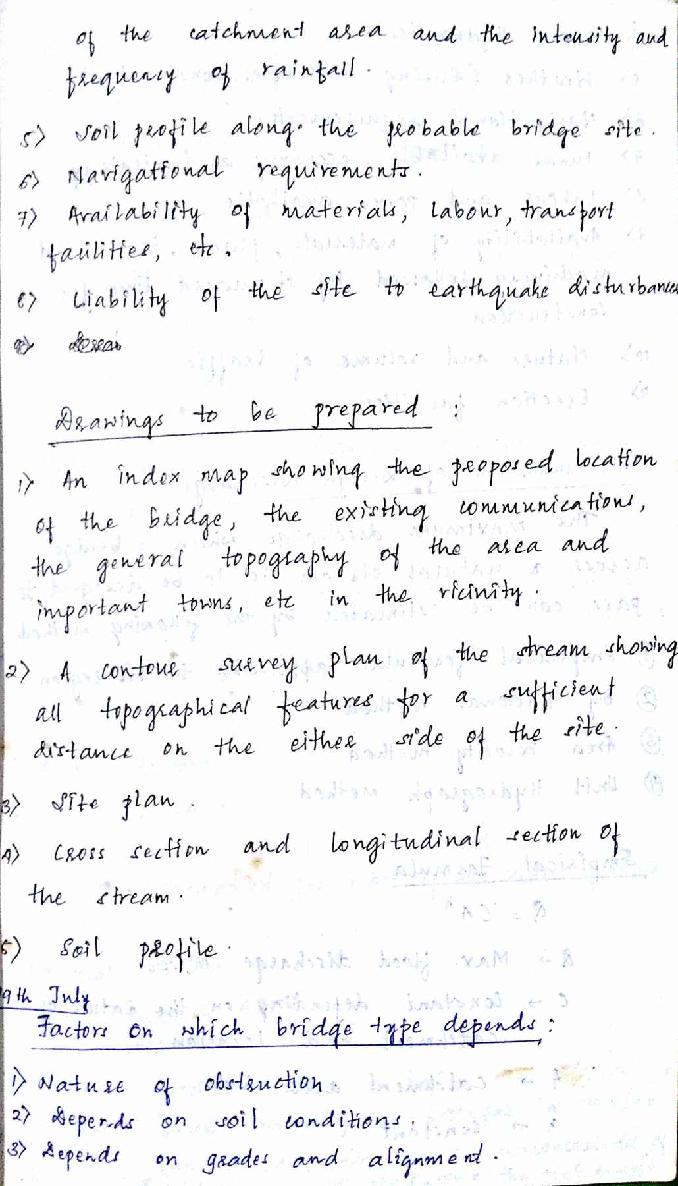 of the catchment area and the intensity and
frequency of rainfall.
5) Soil profile along the probable bridge site.
6) Navigational requirements.
7) Availability of materials, labour, transport
facilities, etc.
8) Liability of the site to earthquake disturbances
9)
Drawings to be prepared :
1) An index map showing the proposed location
of the bridge, the existing communications,
the general topography of the area and
important towns, etc in the vicinity.
2) A contour survey plan of the stream showing
all topographical features for a sufficient
distance on the either side of the site.
3) Site plan.
4) Cross section and longitudinal section of
the stream.
5) Soil profile.
9th July
Factors on which bridge type depends :
1) Nature of obstruction
2) Depends on soil conditions.
3) Depends on grades and alignment.